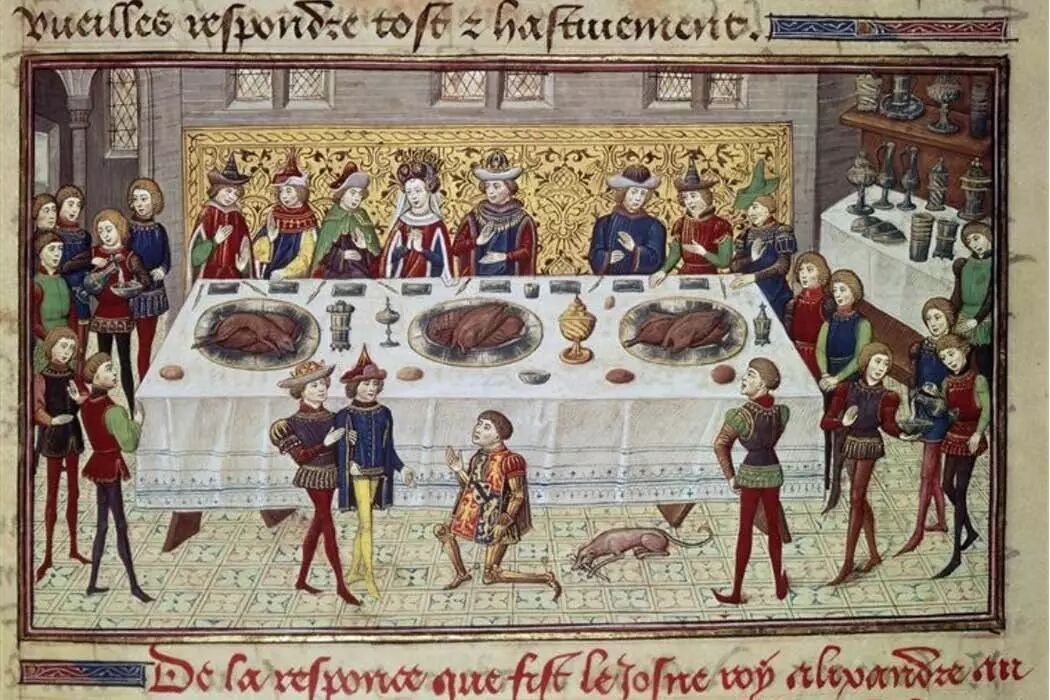 vueilles respondre tost & hastiuement.
De la responce que fist le Josne roy alixandre au